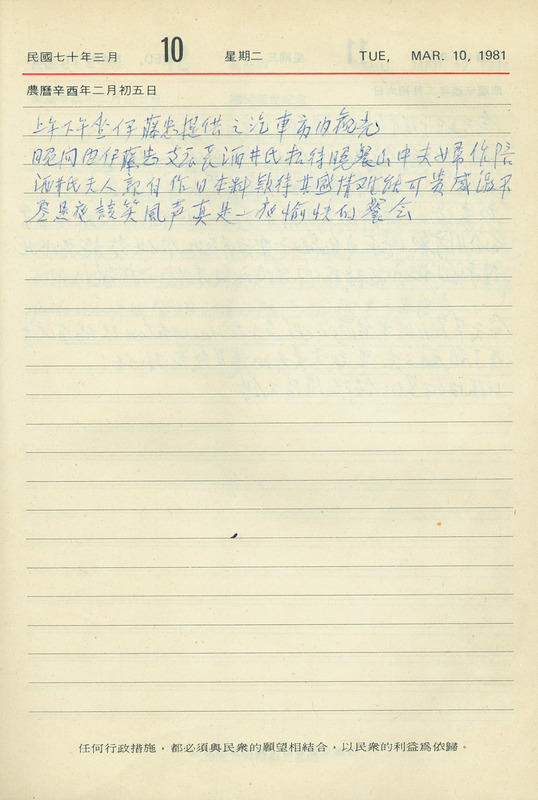 民國七十年三月 10 星期二 TUE, MAR. 10, 1981
農曆辛酉年二月初五日
上午下午坐伊藤忠提供之汽車市内観光
晚间由伊藤忠支店長酒井氏招待晚餐山中夫婦作陪
酒井氏夫人親自作日本料款待其盛情难能可貴感激不
尽是夜談笑風声真是一夜愉快的餐会
任何行政措施，都必須與民衆的願望相結合，以民衆的利益爲依歸。